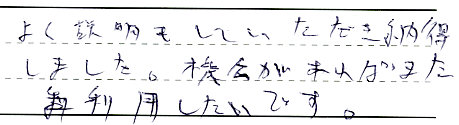 よく説明もしていただき納得
しました。機会が来ればまた
利用したいです。